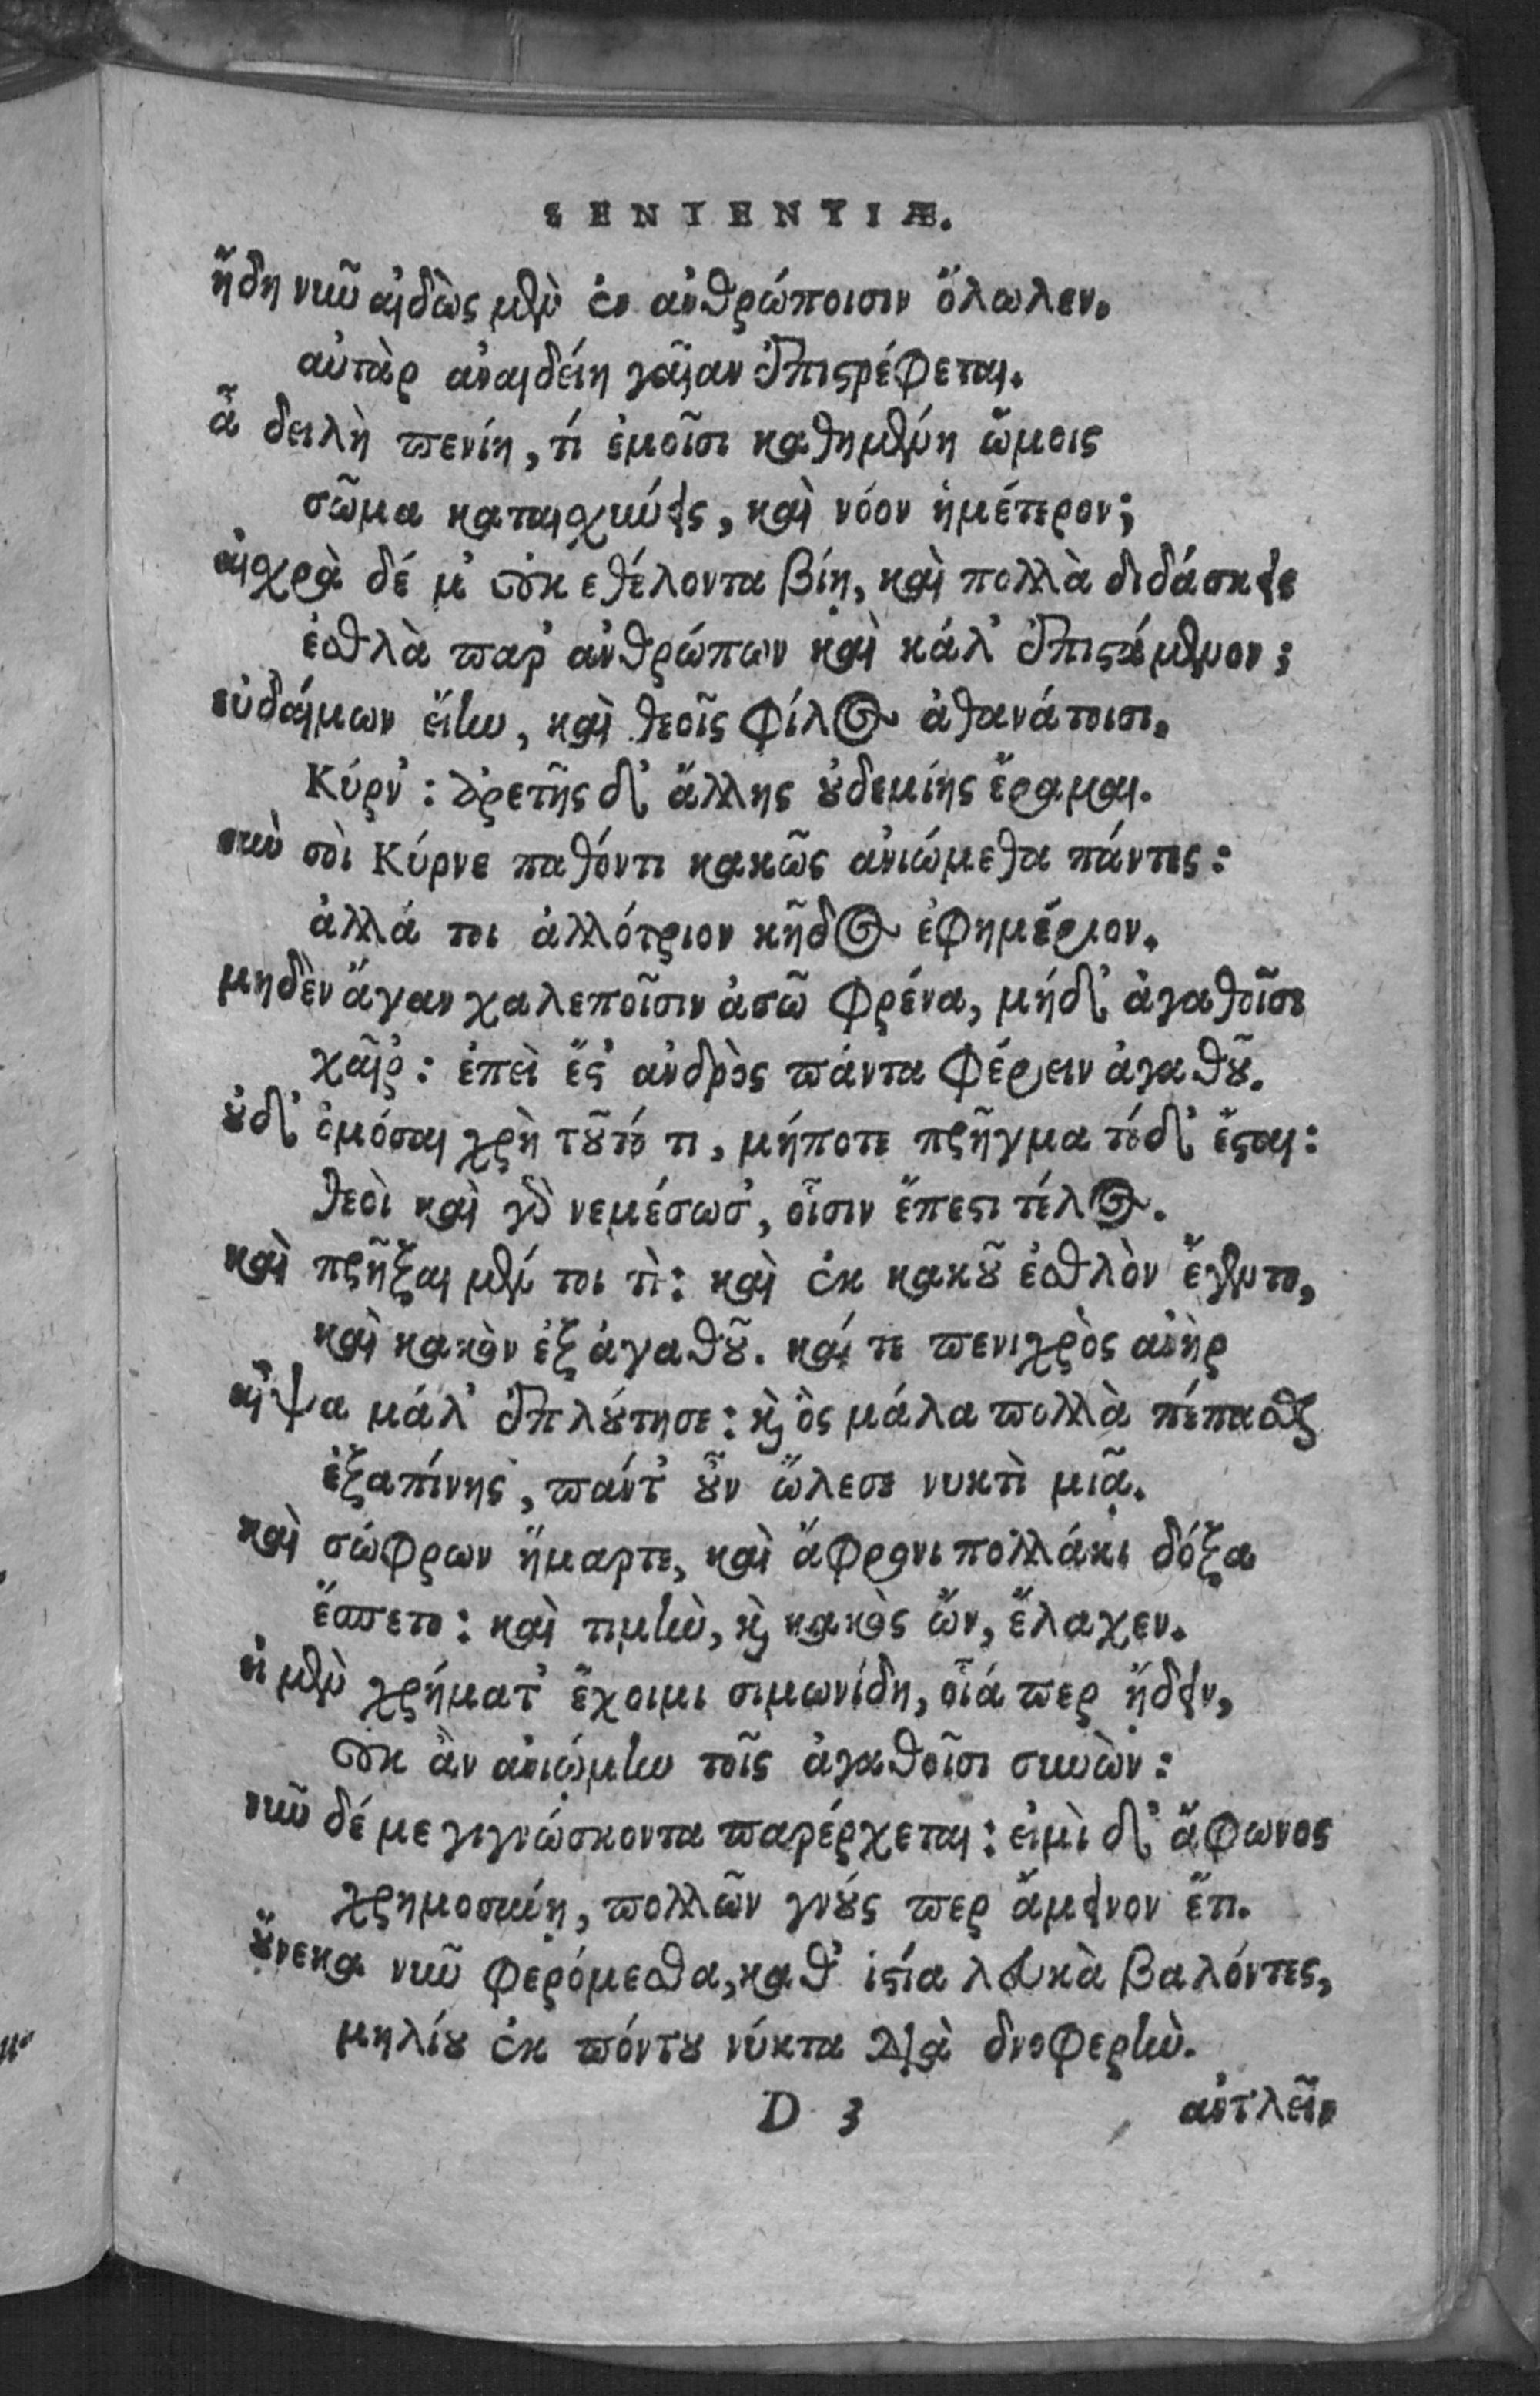 SENTENTIÆ.
ἤδη νῦν αἰδὼς μὲν ἐν ἀνθρώποισιν ὄλωλεν.
αὐτὰρ ἀναιδείη γαῖαν ἐπιστρέφεται.
ἆ δειλὴ πενίη, τί ἐμοῖσι καθημένη ὤμοις
σῶμα καταισχύνεις, καὶ νόον ἡμέτερον;
αἰσχρὰ δέ μ' οὐκ ἐθέλοντα βίῃ, καὶ πολλὰ διδάσκεις
ἐσθλὰ παρ' ἀνθρώπων καὶ κάλ' ἐπιστάμενον;
εὐδαίμων εἴην, καὶ θεοῖς φίλος ἀθανάτοισι.
Κύρν': ἀρετῆς δ' ἄλλης οὐδεμίης ἔραμαι.
σὺν σοὶ Κύρνε παθόντι κακῶς ἀνιώμεθα πάντες:
ἀλλά τοι ἀλλότριον κῆδος ἐφημέριον.
μηδὲν ἄγαν χαλεποῖσιν ἀσῶ φρένα, μήδ' ἀγαθοῖσι
χαῖρ': ἐπεὶ ἔστ' ἀνδρὸς πάντα φέρειν ἀγαθοῦ.
οὐδ' ὀμόσαι χρὴ τοῦτό τι, μήποτε πρῆγμα τόδ' ἔσται:
θεοὶ καὶ γὰρ νεμέσωσ', οἷσιν ἔπεστι τέλος.
καὶ πρῆξαι μέν τοι τὶ: καὶ ἐκ κακοῦ ἐσθλὸν ἔγεντο,
καὶ κακὸν ἐξ ἀγαθοῦ. καί τε πενιχρὸς ἀνὴρ
αἶψα μάλ' ἐπλούτησε: καὶ ὃς μάλα πολλὰ πέπασται
ἐξαπίνης, πάντ' οὖν ὤλεσε νυκτὶ μιᾷ.
καὶ σώφρων ἥμαρτε, καὶ ἄφρονι πολλάκι δόξα
ἕσπετο: καὶ τιμὴν, καὶ κακὸς ὢν, ἔλαχεν.
εἰ μὲν χρήματ' ἔχοιμι σιμωνίδη, οἷά περ ᾔδειν,
οὐκ ἂν ἀνιῴμην τοῖς ἀγαθοῖσι συνὼν:
νῦν δέ με γιγνώσκοντα παρέρχεται: εἰμὶ δ' ἄφωνος
χρημοσύνῃ, πολλῶν γνούς περ ἄμεινον ἔτι.
οὕνεκα νῦν φερόμεσθα, καθ' ἱστία λευκὰ βαλόντες,
μηλίου ἐκ πόντου νύκτα διὰ δνοφερὴν.
D 3
ἀντλεῖν